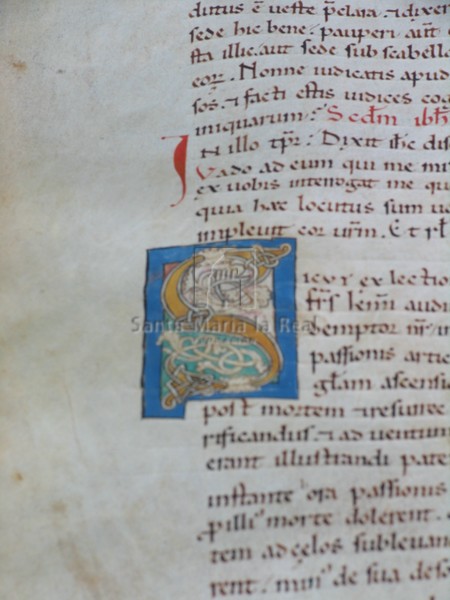 ditus ē veste p̄clara . ⁊ dixer
sede hic bene . pauperi aut̄
sta illic . aut sede sub scabello
eor̄ . Nonne iudicatis apud
sos . ⁊ facti estis iudices cog
iniquarum ? Scđm ioh̄
IN illo tp̄r . Dixit ih̄c dis
Vado ad eum qui me mi
ex vobis interrogat me qu
quia hæc locutus sum vo
impleuit cor ur̄m . Et rł
Santa María la Real
SICVT ex lectio
fr̄s
audi
demptor nr̄ in
passionis artic
głam ascensio
post mortem ⁊ resurrec
rificandus . ⁊ ad uentum
erant illustrandi pate
instante hora passionis
morte dolerent .
tem ad cęlos subleuan
rent . de sua deso